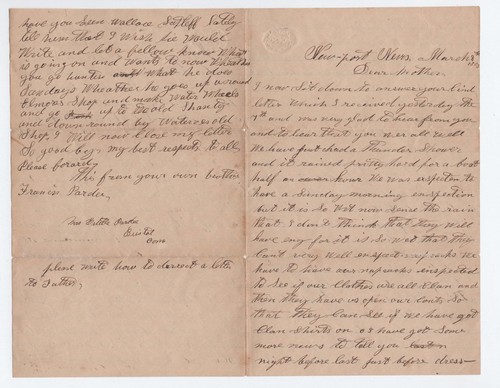 New-port News, March 8th
Dear Mother
I now sit down to answer your kind
letter Which I received yesterday the
7th and was very glad to hear from you
and to hear that you wer all well
We have just had a Thunder Shower
and it rained pretty hard for a bout
half an hour We was expecten to
have a Sunday morning enspection
but it is so Wet now sence the rain
that I don't Think that they Will
have eny for it is so wet that they
Can't very Well enspect We
have to have our napsacks enspected
to see if our Clothes are all Clean and
then they have us open our coats so
that They Can See if we have got
Clan Shirts on I have got some
more news to tell you
night before last just before dress-
have you seen Wallace
tell him that I Wish he would
Write and let a fellow know What
is going on and wants to now Whether
you go hunten What he does
Sundays Wheather he goes up around
Elmores Shop and make Water Wheels
and go up to the old Shanty
and down round by old
Shop, I Will now Close my letter
So good by my best respects to all
Please
This from your own brother
Francis Pardee,
Pardee
Bristol
Conn
please write how to derect a letter
to Father,